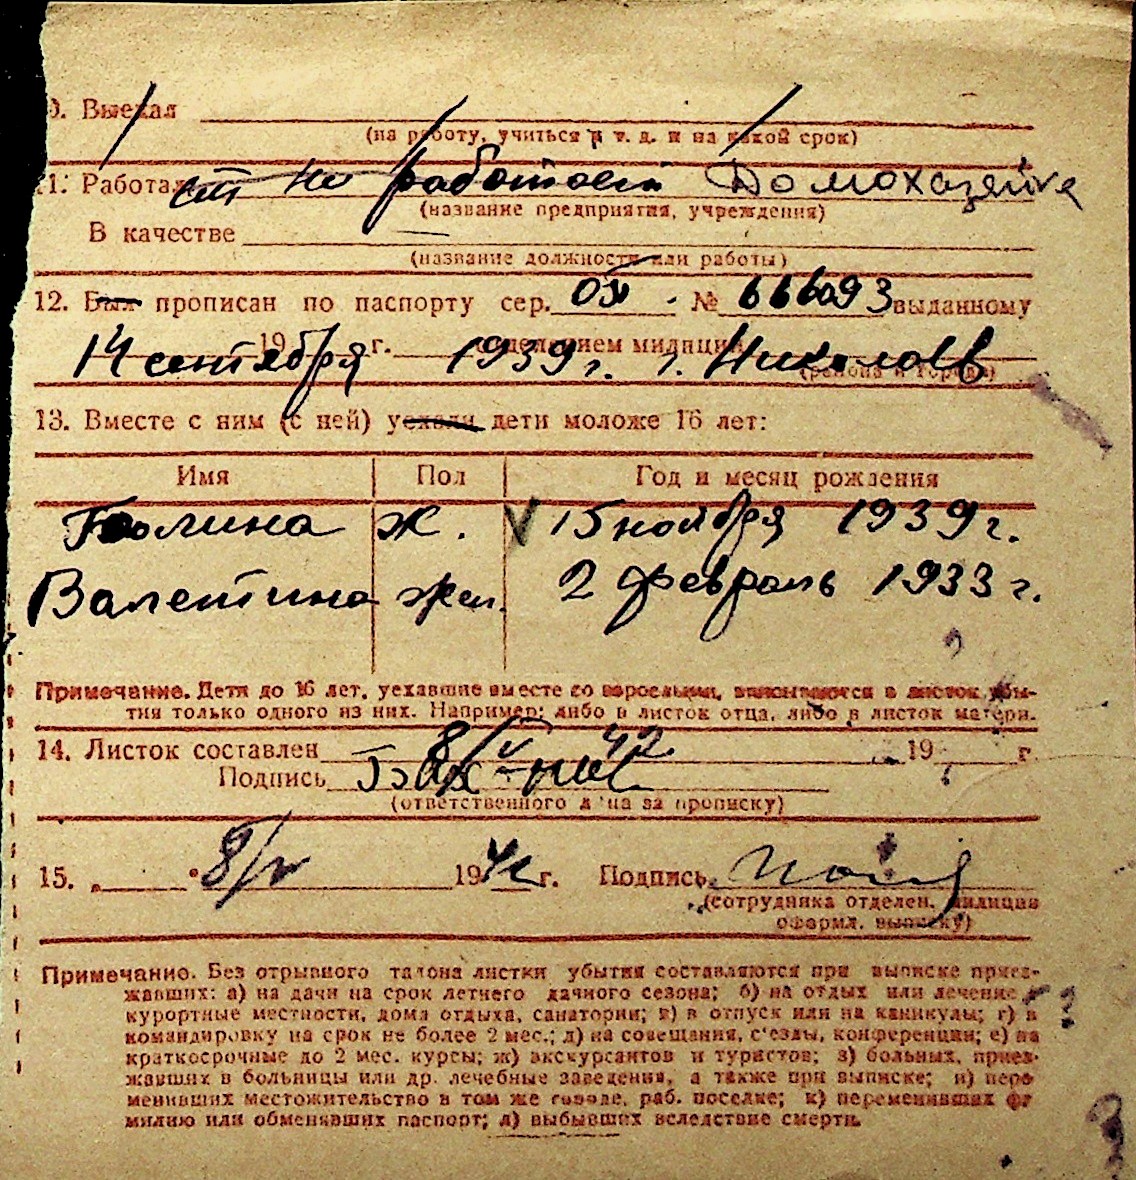 0. Выехал
(на работу, учиться и т. д. и на какой срок)
11. Работал не работает Домохозяйка
(название предприятия, учреждения)
В качестве
(название должности или работы)
12. Был прописан по паспорту сер. № 666093 выданному
14 сентября 19 г. 1939 г. отделением милиции г. Николаев
(района и города)
13. Вместе с ним (с ней) уехали дети моложе 16 лет:
Имя Пол Год и месяц рождения
Полина Ж. V 15 ноября 1939 г.
Валентина жен. 2 февраль 1933 г.
Примечание. Дети до 16 лет, уехавшие вместе со взрослыми, вписываются в листок убы-
тия только одного из них. Например: либо в листок отца, либо в листок матери.
14. Листок составлен 8/V 42 19 г.
Подпись
(ответственного лица за прописку)
15. „ “ 8/V 1942 г. Подпись
(сотрудника отделен. милиции
оформл. выписку)
Примечание. Без отрывного талона листки убытия составляются при выписке приез-
жавших: а) на дачи на срок летнего дачного сезона; б) на отдых или лечение в
курортные местности, дома отдыха, санатории; в) в отпуск или на каникулы; г) в
командировку на срок не более 2 мес.; д) на совещания, с'езды, конференции; е) на
краткосрочные до 2 мес. курсы; ж) экскурсантов и туристов; з) больных, приез-
жавших в больницы или др. лечебные заведения, а также при выписке; и) пере
менивших местожительство в том же городе, раб. поселке; к) переменивших фа
милию или обменявших паспорт; л) выбывших вследствие смерти.